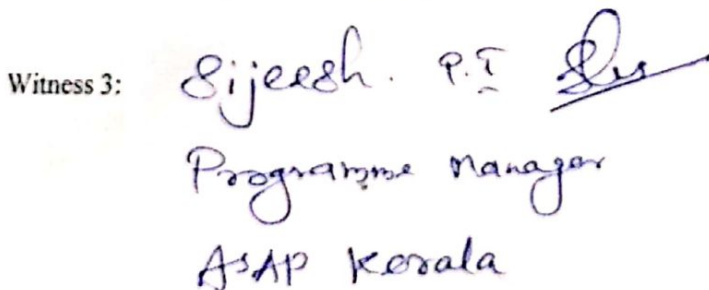 Witness 3: Sijeesh. P.I
Programme Manager
ASAP Kerala